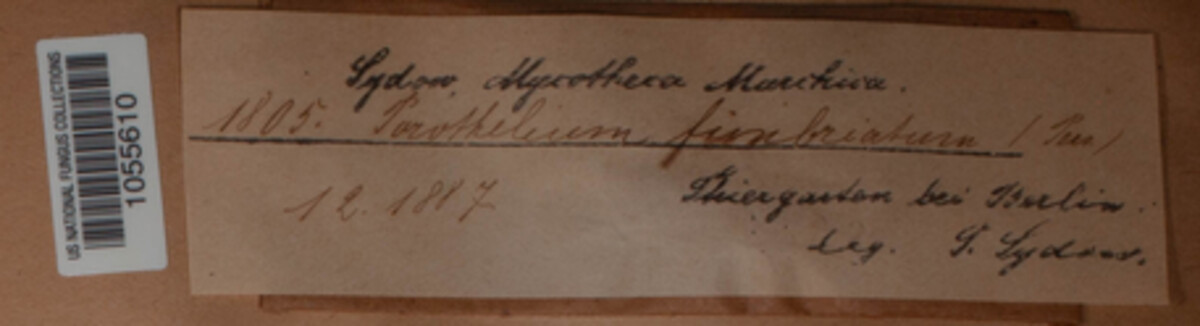 US NATIONAL FUNGUS COLLECTIONS
1055610
Sydow, Mycotheca Marchica.
1805. Porothelium fimbriatum (Pers)
12. 1887
Thiergarten bei Berlin.
Leg. P. Sydow.